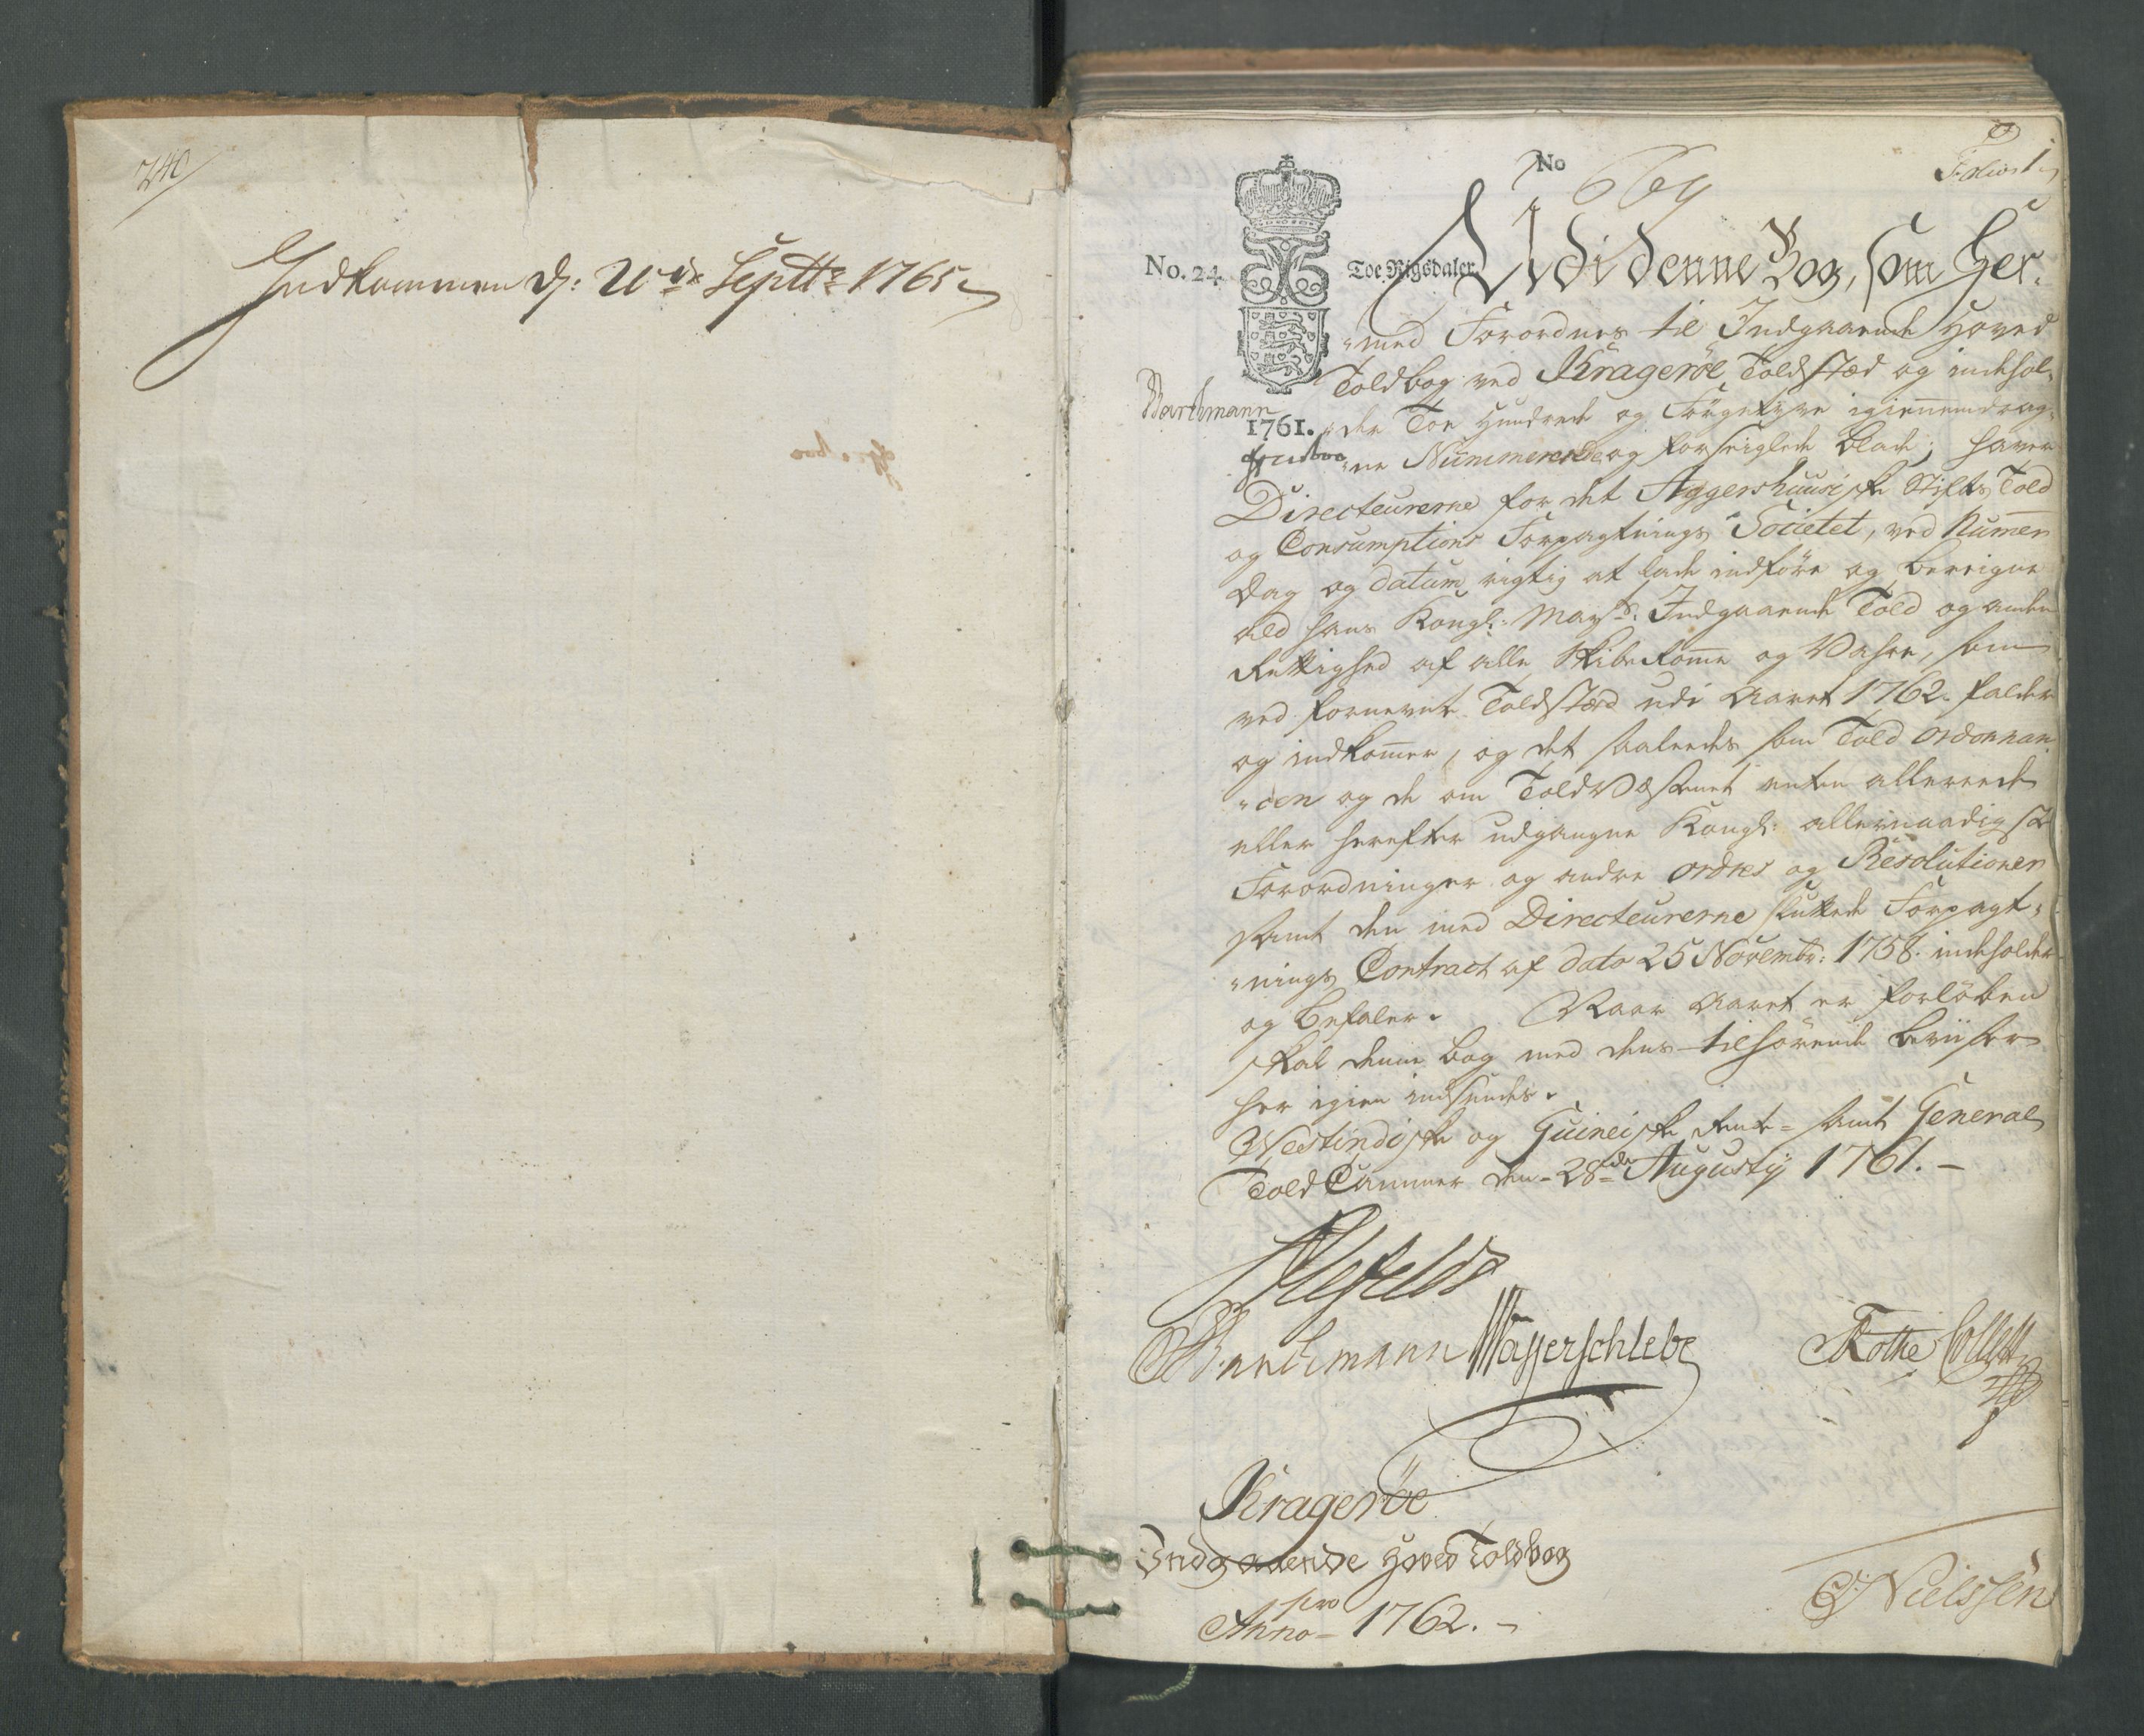 240/
Indkommen d: 21de Septbr 1765
No 669
Folio 1
No. 24 Toe Rigsdaler
Udi denne Bog, som Her-
med Forordnes til Indgaaende Hoved
Toldbog ved Kragerøe Toldstæd og indehol-
Barthmann
1761. der Toe Hundrede og Førgetyve igiennemdrag-
ne Nummererede og forseiglede Blade, haver
Directeurerne for det Aggershuusiske Stifts Told
og Consumptions Forpagtnings Societet, ved Numer
Dag og datum rigtig at lade indføre og beregne
ald hans Kongl: Mayts: Indgaaende Told og anden
Rettighed af alle Skibe komne og Vahre, som
ved fornevnte Toldstæd udi Aaret 1762 falder
og indkommer, og det saaledes som Told ordonnan-
cen og de om Toldvæsenet enten allereede
eller herefter udgangne Kongl: allernaadigste
Forordninger og andre ordres og Resolutioner
samt den med Directeurerne sluttede Forpagt-
nings Contract af dato 25 Novembr: 1758 indeholder
og befaler. Naar Aaret er forløben
skal denne bog med dens tilhørende beviiser
her igien indsendes.
Westindiske og Guineiske Rente- samt General
Told Cammer den 28de Augusty 1761.
Ahlefeldt
Barthmann Wasserschlebe Rothe Collett
Kragerøe
Indgaaende Hoved Toldbog
pro
Anno 1762.
Nielssen